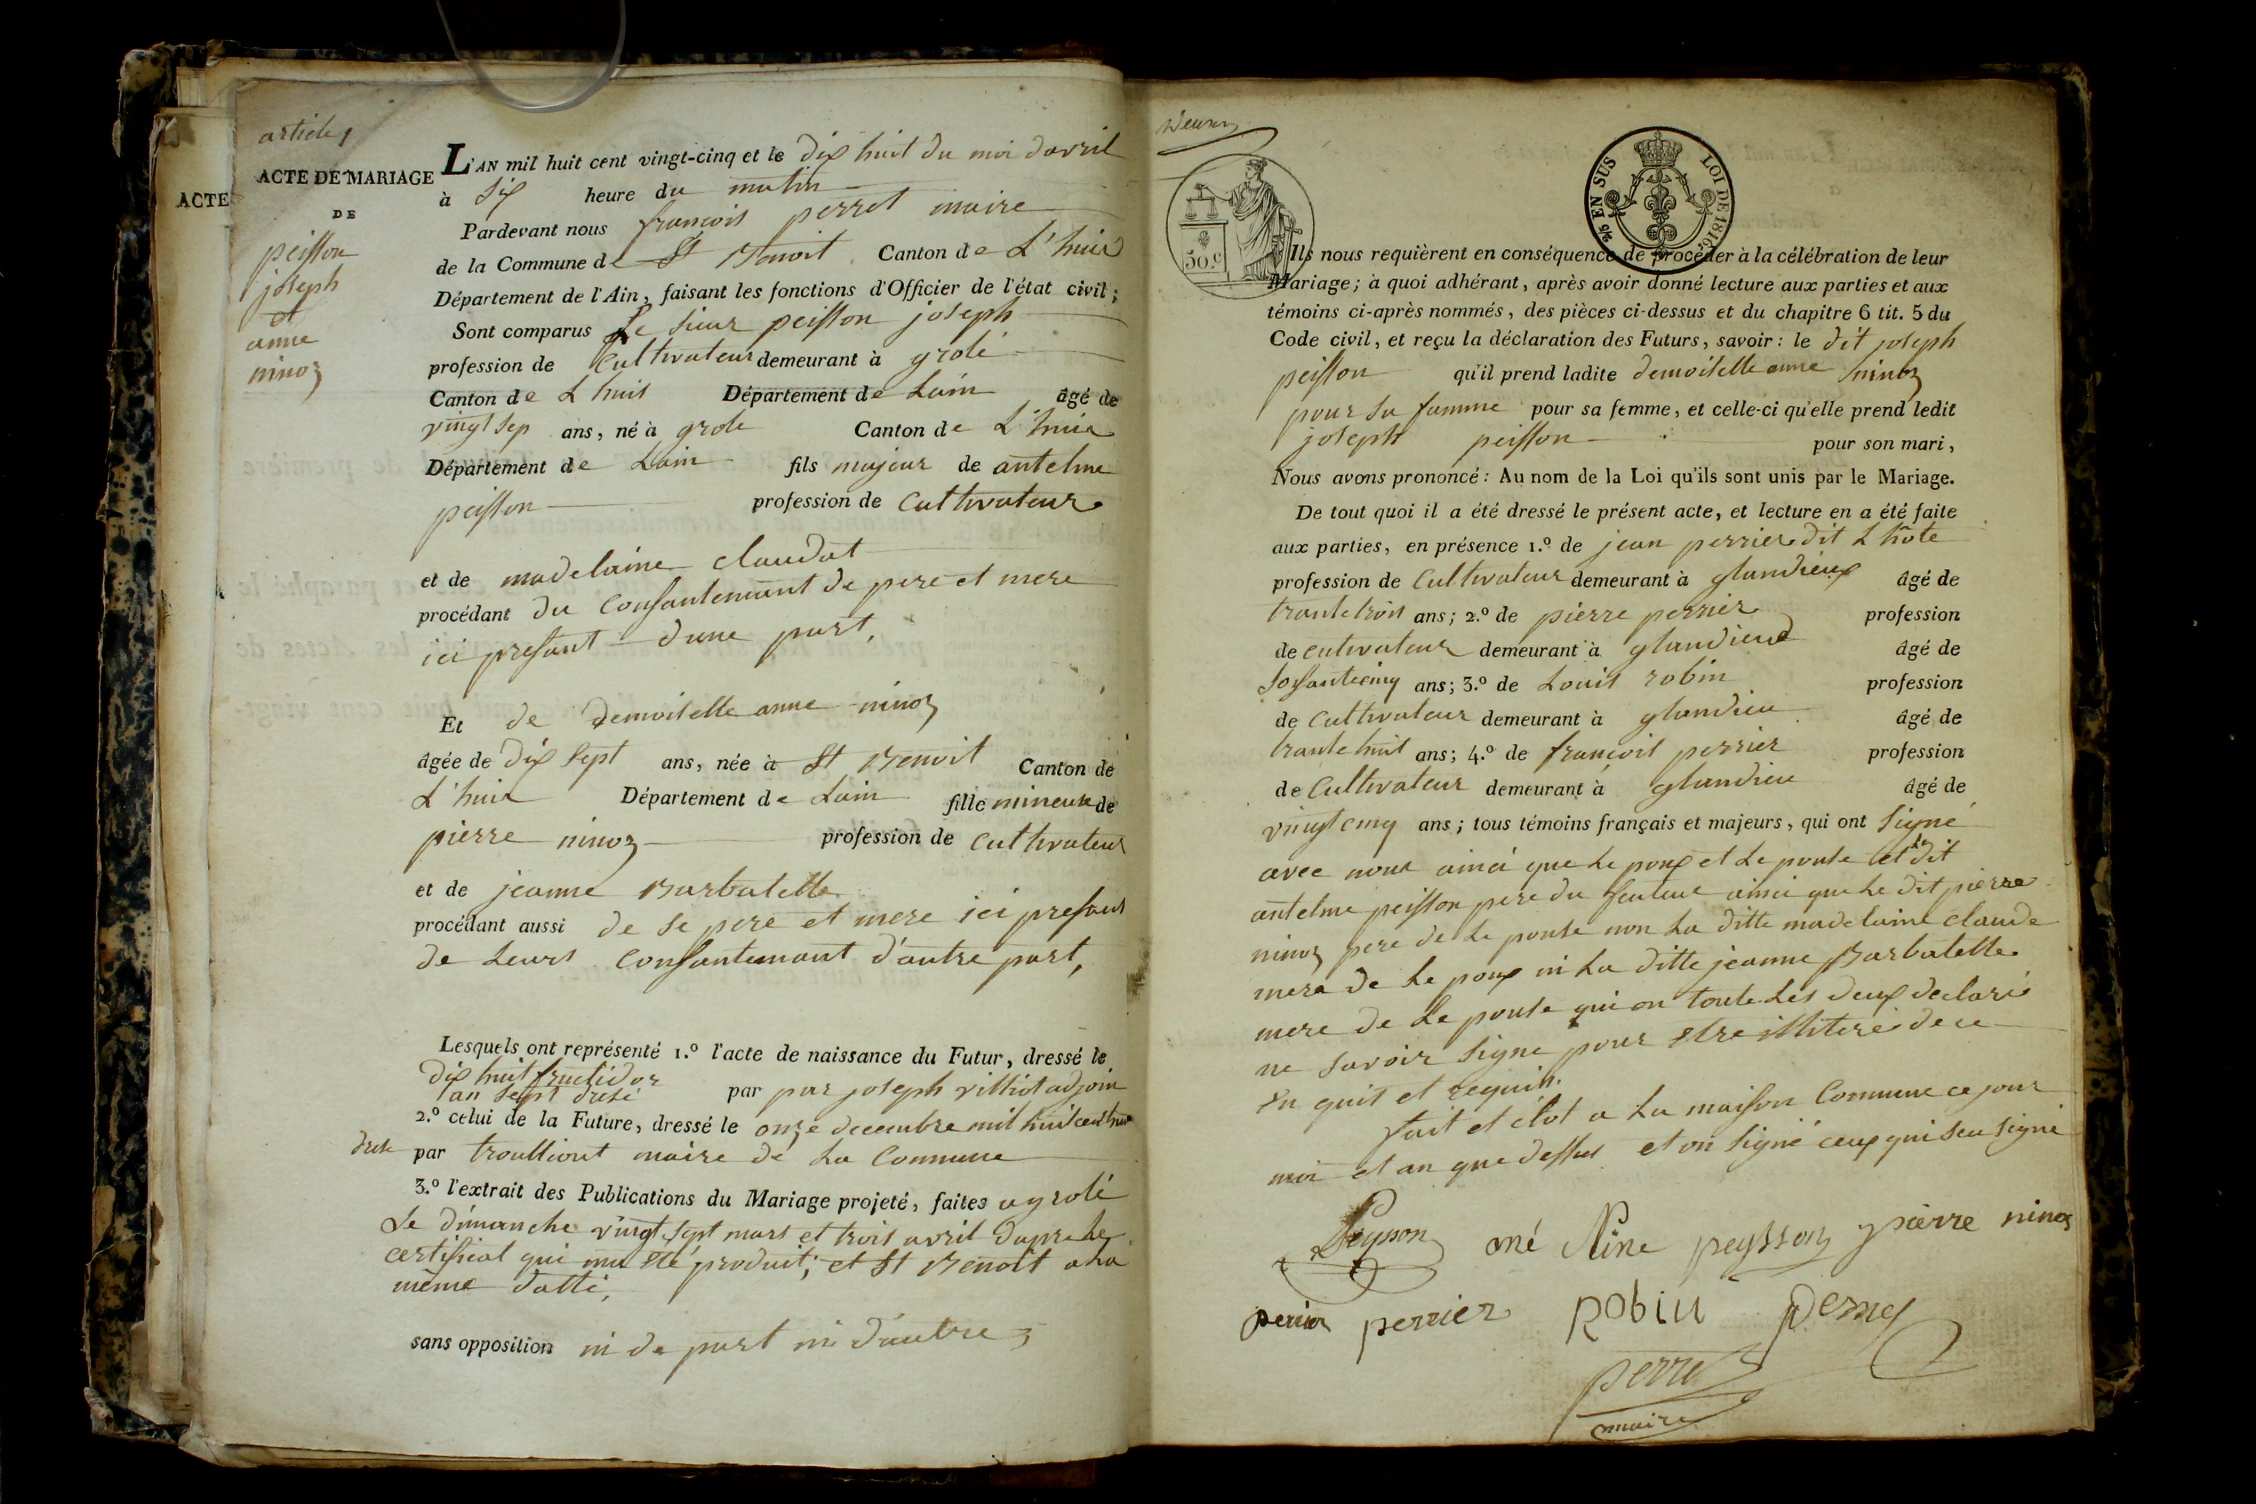 article 1
ACTE DE MARIAGE
ACTE
DE
peisson
joseph
et
anne
ninoz
L'AN mil huit cent vingt-cinq et le dix huit du moi davril
à six heure du matin
Pardevant nous françois perret maire
de la Commune de St Benoit Canton de L'huis
Département de l'Ain, faisant les fonctions d'Officier de l'état civil;
Sont comparus Le sieur peisson joseph
profession de Cultivateur demeurant à grolé
Canton de L huis Département de Lain âgé de
vingt sep ans, né à grole Canton de L'huis
Département de Lain fils majeur de antelme
peisson profession de Cultivateur
et de madelaine claudat
procédant du Consantement de pere et mere
ici presant dune part,
Et de demoiselle anne ninoz
âgée de dix sept ans, née à St Benoit Canton de
L'huis Département de Lain fille mineure de
pierre ninoz profession de Cultivateur
et de jeanne Barbatelle
procédant aussi de se pere et mere ici presant
de Leurs Consantemant d'autre part,
Lesquels ont représenté 1.º l'acte de naissance du Futur, dressé le
dix huit fructidor
an sept drésé par par joseph villiot adjoin
2.º celui de la Future, dressé le onze decembre mil huit cent
par troulliout maire de La Commune
3.º l'extrait des Publications du Mariage projeté, faites a grolé
Le dimanche vingt sept mars et trois avril dapre le
certificat qui ma été produit; et St Benoit a la
même datte,
sans opposition ni de part ni d'autre
30.c
25 EN SUS LOI DE 1816
Ils nous requièrent en conséquence de procéder à la célébration de leur
Mariage; à quoi adhérant, après avoir donné lecture aux parties et aux
témoins ci-après nommés, des pièces ci-dessus et du chapitre 6 tit. 5 du
Code civil, et reçu la déclaration des Futurs, savoir: le dit joseph
peisson qu'il prend ladite demoiselle anne ninoz
pour sa famme pour sa femme, et celle-ci qu'elle prend ledit
joseph peisson pour son mari,
Nous avons prononcé: Au nom de la Loi qu'ils sont unis par le Mariage.
De tout quoi il a été dressé le présent acte, et lecture en a été faite
aux parties, en présence 1.º de jean perrier dit L hôte
profession de Cultivateur demeurant à glandieux âgé de
trante trois ans; 2.º de pierre perrier profession
de cutivateur demeurant à glandieu âgé de
soisantecinq ans; 3.º de Louis robin profession
de Cultivateur demeurant à glandieu âgé de
trante huit ans; 4.º de françois perrier profession
de Cultivateur demeurant à glandieu âgé de
vingt cinq ans; tous témoins français et majeurs, qui ont signé
avec nous ainci que Le poux et Le pouse et le dit
antelme peisson pere du feuteur ainci que Le dit pierre
ninoz pere de Le pouse non La ditte madelaine claude
mere de Le poux ni La ditte jeanne Barbatelle
mere de Le pouse qui on toute Les deux declaré
ne savoir signe pour etre illiteré de ce
en quit et requis.
fait et clot a La maison Commune ce jour
moi et an que dessus et on signé ceux qui seu signé
Peysson né Nine peysson pierre ninoz
perrier perrier Robin
perret
maire